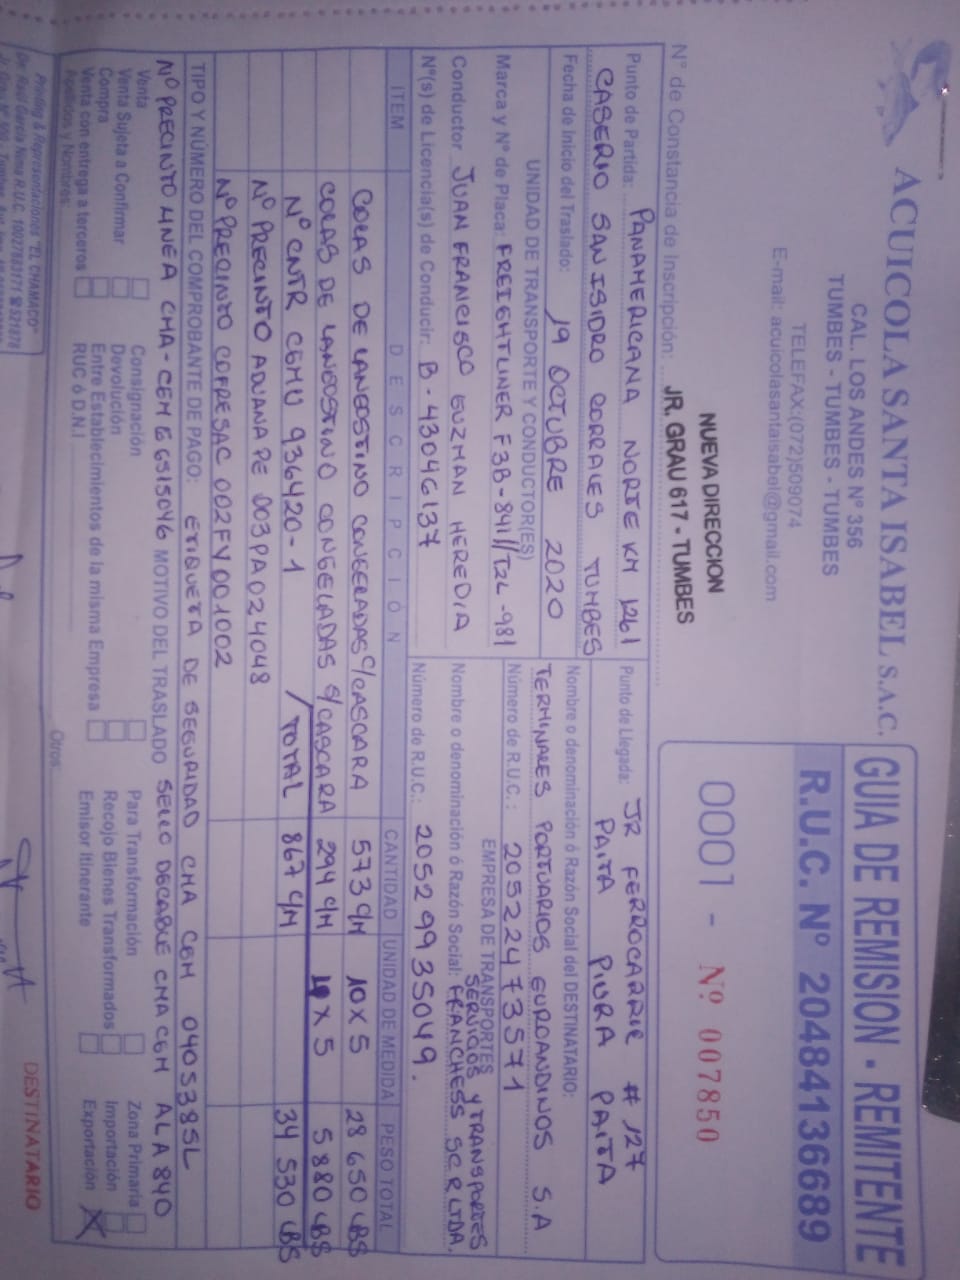 ACUICOLA SANTA ISABEL S.A.C.
CAL. LOS ANDES Nº 356
TUMBES - TUMBES - TUMBES
TELEFAX:(072)509074
E-mail: acuicolasantaisabel@gmail.com
NUEVA DIRECCION
JR. GRAU 617 - TUMBES
GUIA DE REMISION - REMITENTE
R.U.C. Nº 20484136689
0001 - Nº 007850
Nº de Constancia de Inscripción:
Punto de Partida: PANAMERICANA NORTE KM 1261
CASERIO SAN ISIDRO CORRALES TUMBES
Punto de Llegada: JR FERROCARRIL # 127
PAITA PIURA PAITA
Fecha de Inicio del Traslado: 19 OCTUBRE 2020
Nombre o denominación ó Razón Social del DESTINATARIO:
TERMINALES PORTUARIOS EUROANDINOS S.A
UNIDAD DE TRANSPORTE Y CONDUCTOR(ES)
Número de R.U.C.: 20522473571
Marca y Nº de Placa: FREIGHTLINER F3B-841//T2L-981
EMPRESA DE TRANSPORTES
Conductor JUAN FRANCISCO GUZMAN HEREDIA
Nombre o denominación ó Razón Social: SERVICIOS Y TRANSPORTES
FRANCHESS SCRLTDA.
Nº(s) de Licencia(s) de Conducir: B-43046137
Número de R.U.C.: 20529935049.
ITEM DESCRIPCIÓN CANTIDAD UNIDAD DE MEDIDA PESO TOTAL
COLAS DE LANGOSTINO CONGELADAS C/CASCARA 573 C/M 10X5 28 650 LBS
COLAS DE LANGOSTINO CONGELADAS S/CASCARA 294 C/M X 5 5880 LBS
Nº CNTR CGMU 936420-1 / TOTAL 867 C/M 34 530 LBS
Nº PRECINTO ADUANA PE 003PA024048
Nº PRECINTO COFRESAC 002FY001002
TIPO Y NÚMERO DEL COMPROBANTE DE PAGO: ETIQUETA DE SEGURIDAD CMA CGM 0405385L
Nº PRECINTO LINEA CMA-CGM G6515046 MOTIVO DEL TRASLADO SELLO DE CABLE CMA CGM ALA 840
Venta
Consignación
Para Transformación
Zona Primaria
Venta Sujeta a Confirmar
Devolución
Recojo Bienes Transformados
Importación
Compra
Entre Establecimientos de la misma Empresa
Emisor Itinerante
Exportación X
Venta con entrega a terceros
RUC ó D.N.I
Otros:
Apellidos y Nombres:
"EL CHAMACO"
DESTINATARIO